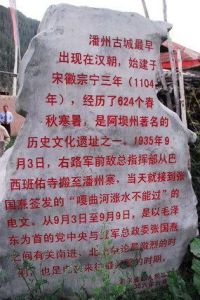 潘州古城最早
出现在汉朝，始建于
宋徽宗宁三年（1104
年），经历了624个春
秋寒暑，是阿坝州著名的
历史文化遗址之一。1935年9
月3日，右路军前敌总指挥部从巴
西班佑寺搬至潘州寨，当天就接到张
国焘签发的“嘎曲河涨水不能过”的
电文。从9月3日至9月9日，是以毛泽
东为首的党中央与红军总政委张国焘
之间有关南进、北上争论最激烈的时
期，也是